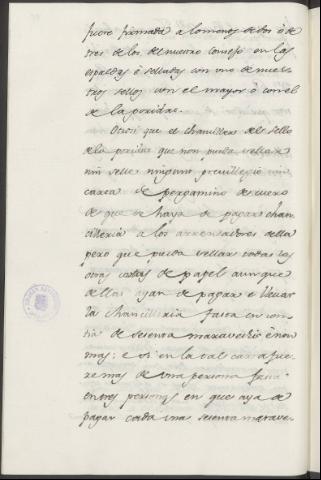 fuere firmada a lo menos de dos o de
tres de los del nuestro consejo en las
espaldas o selladas con uno de nues
tros sellos con el mayor o con el
de la poridat.
Otrosi que el chanciller del sello
de la poridat que non pueda sellar
nin selle ninguno previllegio nin
carta de pergamino de cuero
de que se haya de pagar chan
cilleria a los arrendadores della
pero que pueda sellar todas las
otras cartas de papel aunque
dellas ayan de pagar e llevar
la chancilleria fasta en con
tia de sesenta maravedis e non
mas; e si en la tal carta fue
re mas de una persona fasta
en tres personas en que aya de
pagar cada una sesenta marave